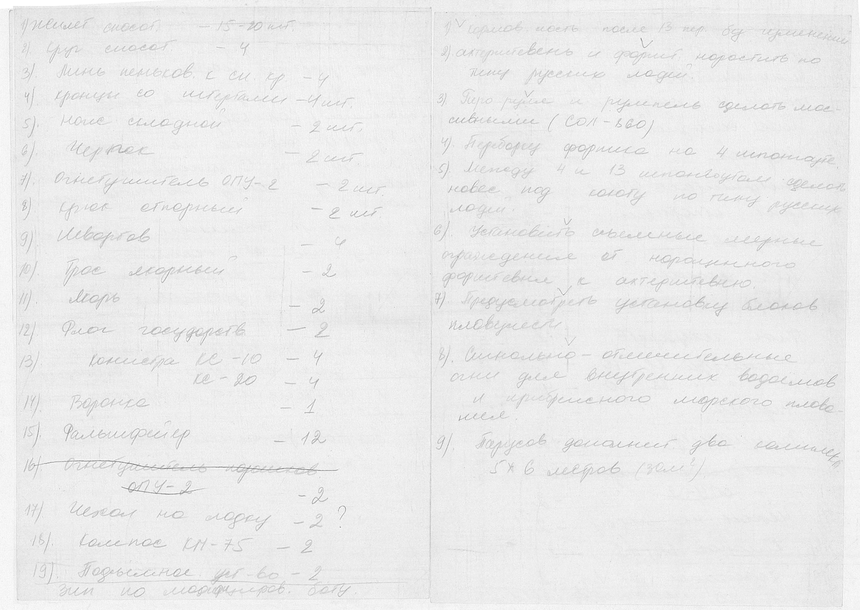 1) Жилет спасат — 15-20 шт.
2) Круг спасат — 4
3) Линь пеньков. к сп. кр. — 4
4) Кранцы со штертами — 4 шт.
5). Нож складной — 2 шт.
6). Черпак — 2 шт
7). Огнетушитель ОПУ-2 — 2 шт
8) Крюк отпорный — 2 шт
9) Швартов — 4
10) Трос якорный — 2
11) Якорь — 2
12) Флаг государств — 2
13) Канистра КС-10 — 4
КС-20 — 4
14). Воронка — 1
15). Фальшфейер — 12
16) Огнетушитель порошков
ОПУ-2 — 2
17) Чехол на лодку — 2 ?
18). Компас КМ-75 — 2
19). Подъемное уст-во — 2
ЗИП по боту.
1) после 13 пер.
2) ахтерштевень и форшт нарастить по
типу русских ладей.
3) Перо руля и румпель сделать мас-
сивными
4) Переборку форпика на 4 шпангоуте.
5) Между 4 и 13 шпангоутами сделать
навес под каюту по типу русских
ладей.
6) Установить съемные леерные
ограждения от наращенного
форштевня к ахтерштевню.
7) Предусмотреть установку блоков
плавучести
8). Сигнально-отличительные
огни для внутренних водоемов
и прибрежного морского плава-
ния
9) Парусов дополнит два
5 * 6 метров (30м²)